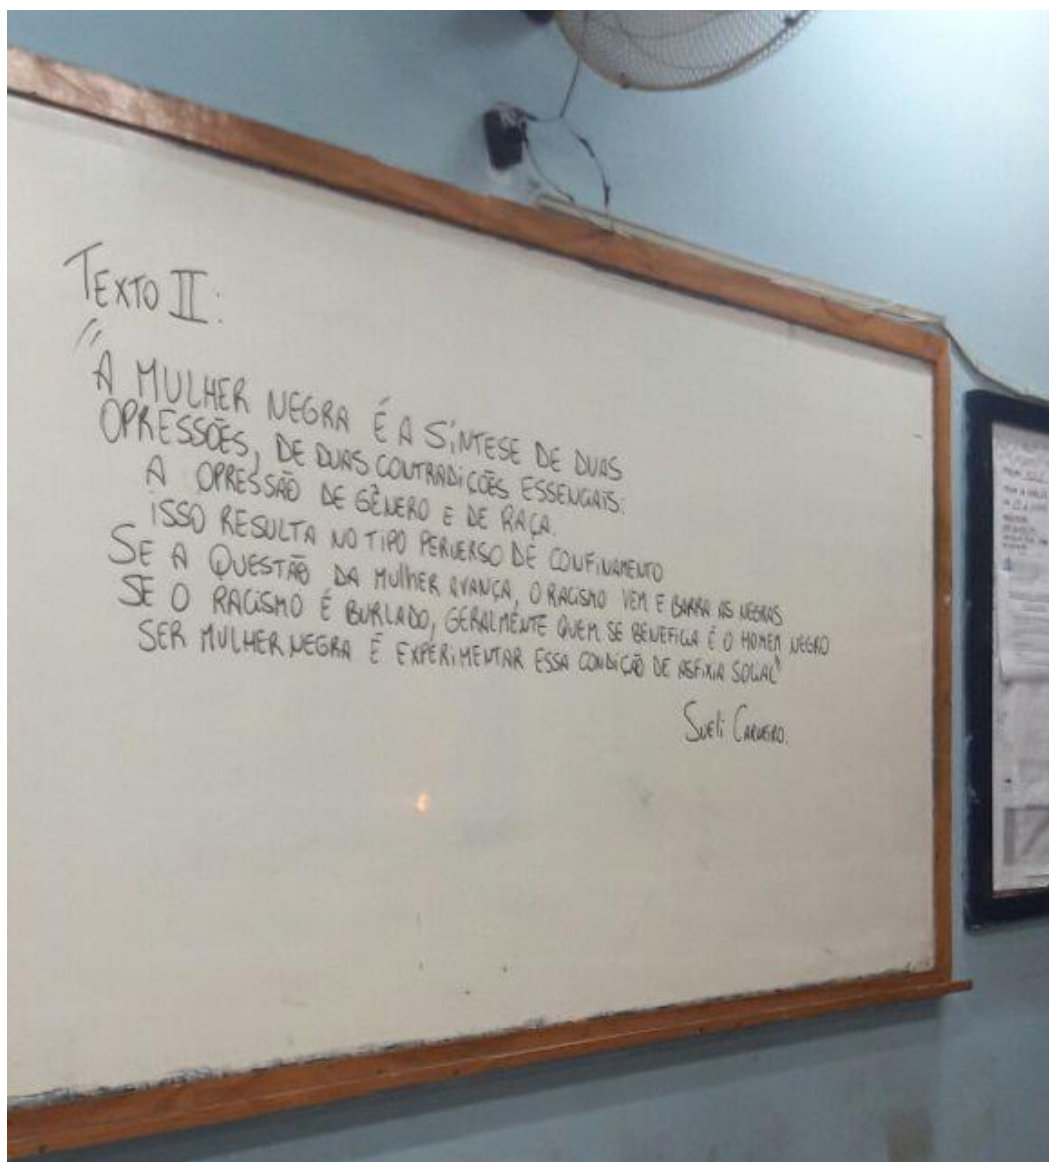 TEXTO II:
"A MULHER NEGRA É A SÍNTESE DE DUAS
OPRESSÕES, DE DUAS CONTRADIÇÕES ESSENCIAIS:
A OPRESSÃO DE GÊNERO E DE RAÇA.
ISSO RESULTA NO TIPO PERVERSO DE CONFINAMENTO
SE A QUESTÃO DA MULHER AVANÇA, O RACISMO VEM E BARRA AS NEGRAS
SE O RACISMO É BURLADO, GERALMENTE QUEM SE BENEFICIA É O HOMEM NEGRO
SER MULHER NEGRA É EXPERIMENTAR ESSA CONDIÇÃO DE ASFIXIA SOCIAL"
Sueli Carneiro.